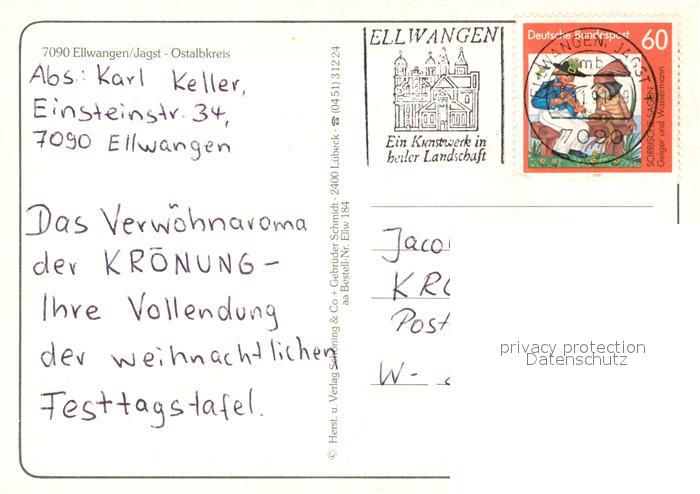 7090 Ellwangen/Jagst - Ostalbkreis
Abs.: Karl Keller,
Einsteinstr. 34,
7090 Ellwangen
Das Verwöhnaroma
der KRÖNUNG –
Ihre Vollendung
der weihnachtlichen
Festtagstafel.
© Herst. u. Verlag Schöning & Co + Gebrüder Schmidt · 2400 Lübeck · ☎ (04 51) 3 12 24
aa Bestell-Nr. Ellw 184
ELLWANGEN
Ein Kunstwerk in
heiler Landschaft
Deutsche Bundespost 60
SORBISCHE SAGEN
Geiger und Wassermann
1991
ELLWANGEN, JAGST
mb
7090
Jaco
KR
Post
W-
privacy protection
Datenschutz